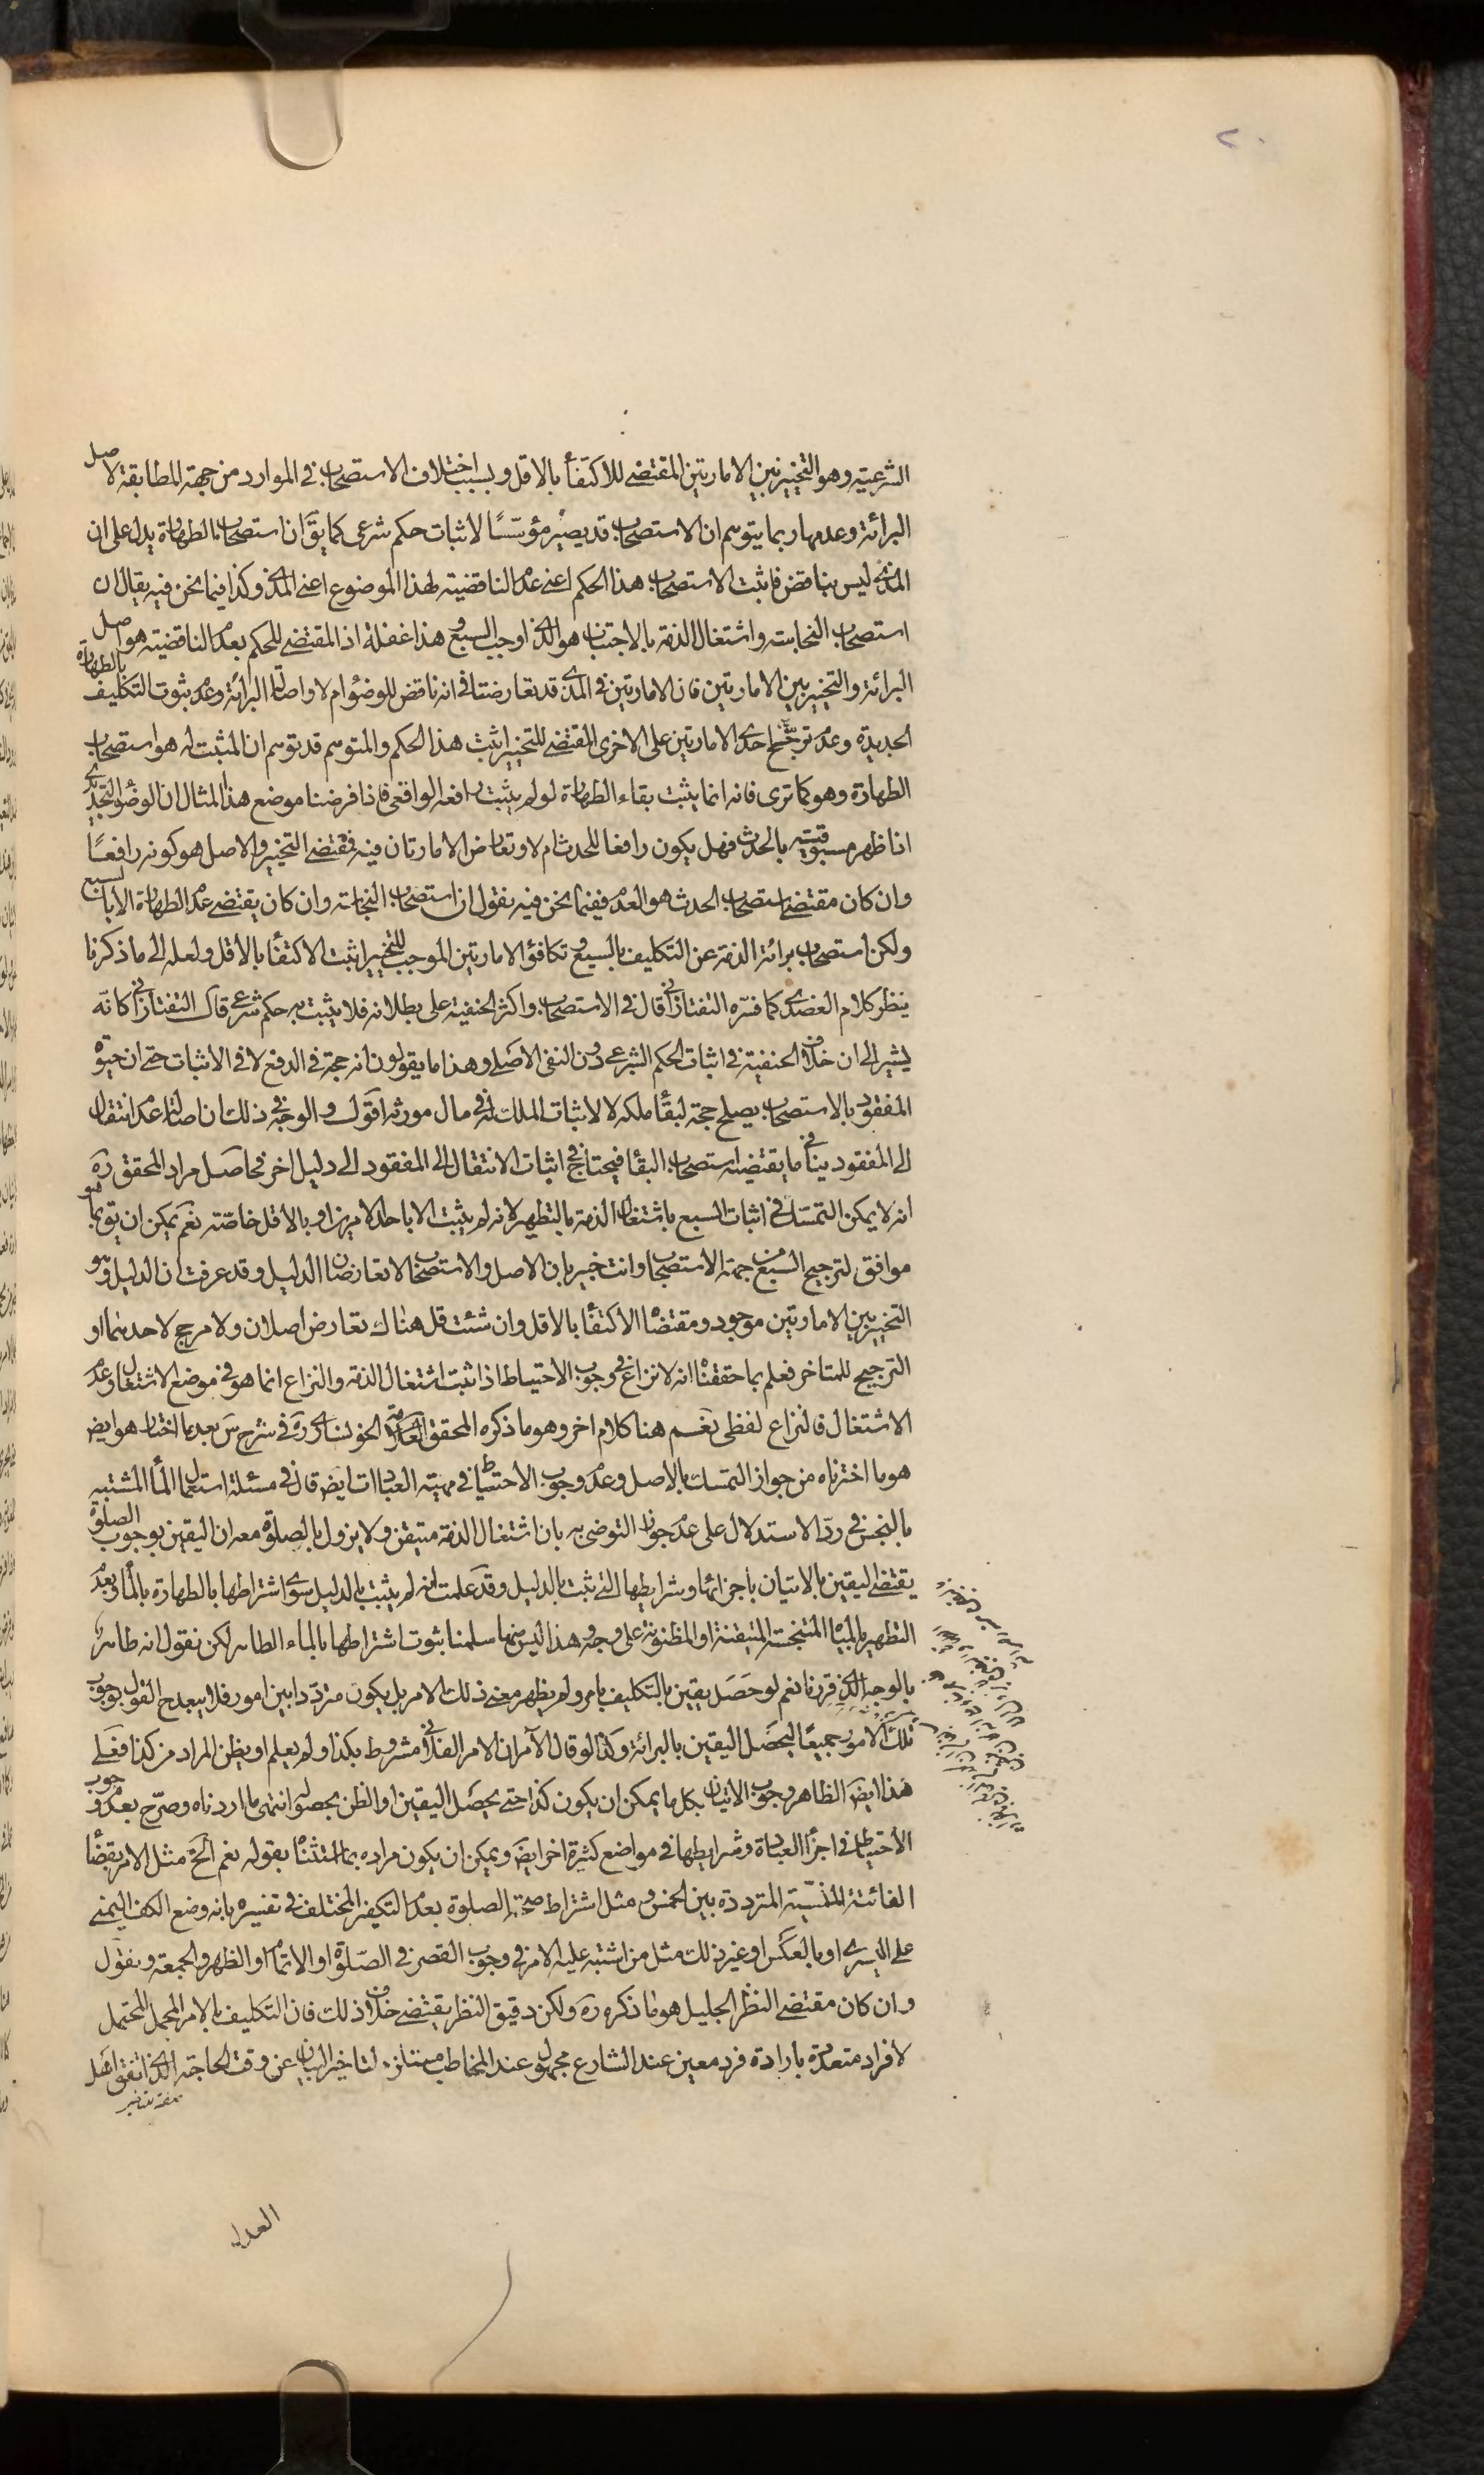 ٢٠
الشرعية وهو التخيير بين الامارتين المقتضى للاكتفأ بالاقل وبسبب اختلاف الاستصحاب في الموارد من جهة المطابقة لاصل
البرائة وعدمها ربما يتوهم ان الاستصحاب قد يصير مؤسّسًا لاثبات حكم شرعى كما يقٓ ان استصحاب الطهارة يدل على ان
المذى ليس بناقض فاثبت الاستصحاب هذا الحكم اعنى عدم الناقضية لهذا الموضوع اعنى المذى وكذا فيما نحن فيه يقال ان
استصحاب النجاسة واشتغال الذمة بالاجتناب هو الذى اوجب السبع وهذا غفلة اذ المقتضى للحكم بعدم الناقضية هو اصل
البرائة والتخيير بين الامارتين فان الامارتين في المذى قد تعارضتا في انه ناقض للوضوء ام لا واصالة البرائة وعدم ثبوت التكليف بالطهارة
الجديدة وعدم ترجيح احدى الامارتين على الاخرى المقتضى للتخيير اثبت هذا الحكم والمتوهم قد توهم ان المثبت له هو استصحاب
الطهارة وهو كما ترى فانه انما يثبت بقاء الطهارة لو لم يثبت رافعه الواقعى فاذا فرضنا موضع هذا المثال ان الوضوء التجديدى
اذا ظهر مسبوقيته بالحدث فهل يكون رافعا للحدث ام لا وتعارض الامارتان فيه فمقتضى التخيير والاصل هو كونه رافعًا
وان كان مقتضى استصحاب الحدث هو العدم ففيما نحن فيه نقول ان استصحاب النجاسة وان كان يقتضى عدم الطهارة الا بالسبع
ولكن استصحاب برائة الذمة عن التكليف بالسبع وتكافؤ الامارتين الموجب للتخيير اثبت الاكتفأ بالاقل ولعله الى ما ذكرنا
ينظر كلام العضدى كما فسّره التفتازانى قال في الاستصحاب واكثر الحنفية على بطلانه فلا يثبت به حكم شرعى قال التفتازانى كانّه
يشير الى ان خلاف الحنفية في اثبات الحكم الشرعى دون النفى الاصلى وهذا ما يقولون انه حجة في الدفع لا في الاثبات حتى ان حيوة
المفقود بالاستصحاب يصلح حجة لبقأ ملكه لا لاثبات الملك له في مال مورثه اقول والوجه في ذلك ان اصالة عدم انتقال
الى المفقود ينافى ما يقتضيه استصحاب البقأ فيحتاج في اثبات الانتقال الى المفقود الى دليل اخر فحاصل مراد المحقق ره
انه لا يمكن التمسّك في اثبات السبع باشتغال الذمة بالتطهير لانه لم يثبت الا باحد الامرين او بالاقل خاصّة نعم يمكن ان يقٓ بما هو
موافق لترجيح السبع من جهة الاستصحاب وانت خبير بان الاصل والاستصحاب لا تعارضان الدليل وقد عرفت ان الدليل وهو
التخيير بين الامارتين موجود ومقتضاه الاكتفأ بالاقل وان شئت قل هناك تعارض اصلان ولا مرجح لاحدهما او
الترجيح للمتاخر فعلم بما حققناه انه لا نزاع في وجوب الاحتياط اذا ثبت اشتغال الذمة والنزاع انما هو في موضع الاشتغال وعدم
الاشتغال فالنزاع لفظى نعم هنا كلام اخر وهو ما ذكره المحقق العلامة الخونسارى ره في شرح س بعد ما اختار هو ايض
هو ما اخترناه من جواز التمسك بالاصل وعدم وجوب الاحتياط في مهية العبادات ايض قال في مسئلة استعمال الماء المشتبه
بالنجس في ردّ الاستدلال على عدم جواز التوضى به بان اشتغال الذمة متيقن ولا يزول بالصلوة معه ان اليقين بوجوب الصلوة
يقتضى اليقين بالاتيان باجزائها وشرايطها التى ثبت بالدليل وقد علمت انه لم يثبت بالدليل سوى اشتراطها بالطهارة بالمأ وبعدم
التطهير بالمياه المتنجسة المتيقنة او المظنونة على وجه وهذا ليس منها سلمنا ثبوت اشتراطها بالماء الطاهر لكن نقول انه طاهر
بالوجه الذى قررنا نعم لو حَصَل يقين بالتكليف بامر ولم يظهر معنى ذلك الامر بل يكون متردّدا بين امور فلا يبعد ح القول بوجوب
تلك الامور جميعًا ليحصَل اليقين بالبرائة وكذا لو قال الآمر ان الامر الفلانى مشروط بكذا ولم يعلم او يظن المراد من كذا فعلى
هذا ايض الظاهر وجوب الاتيان بكل ما يمكن ان يكون كذا حتى يحصَل اليقين او الظن بحصوله انتهى ما اردناه وصرّح بعدم وجوب
الاحتياط في اجزأ العبادة وشرايطها في مواضع كثيرة اخر ايض ويمكن ان يكون مراده بما استثناه بقوله نعم الخ مثل الامر بقضأ
الفائتة المنسيّة المترددة بين الخمس ومثل اشتراط صحة الصلوة بعدم التكفير المختلف في تفسيره بانه وضع الكف اليمنى
على اليسرى او بالعكس او غير ذلك مثل من اشتبه عليه الامر في وجوب القصر في الصّلوة او الاتمام او الظهر والجمعة ونقول
وان كان مقتضى النظر الجليل هو ما ذكره ره ولكن دقيق النظر يقتضى خلاف ذلك فان التكليف بالامر المجمل المحتمل
لافراد متعددة بارادة فرد معين عند الشارع مجهول عند المخاطب مستلزم لتاخير البيان عن وقت الحاجة الذى اتفق اهل
العدل